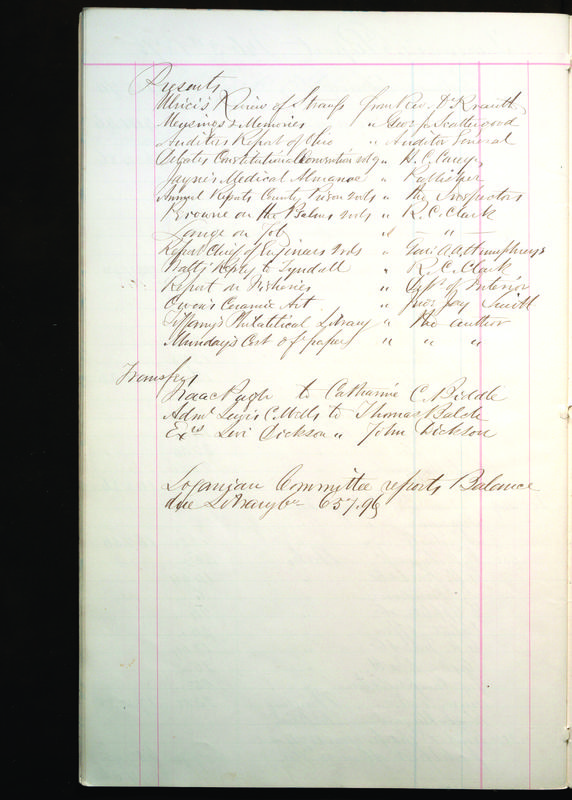 Presents
Ulrici's Review of Strauss from Rev. Dr Krauth
Meysinos & Memories " Geo. J. Scattergood
Auditors Report of Ohio " Auditor General
Debates Constitutional Convention " H. C. Carey
Jayne's Medical Almanac "
Annual Reports County Prison 2 vols " the Inspectors
Browne on the Psalms 2 vols " R. C. Clark
Lange on Job " - " -
Report Chief of Engineers 2 vols " Gen. A. A. Humphreys
Watts Reply to Tyndall " R. C. Clark
Report on Fisheries " Dept. of Interior
Owen's Ceramic Art " Jno. Jay Smith
Tiffany's Philatelical Library " the author
Munday's Cost of paper " " "
Transfers
Isaac Pugh to Catharine C. Biddle
Admr C. Mills to Thomas Balch
Exrs Levi Dickson " John Dickson
Loganian Committee reports Balance
due Library Co 657.96